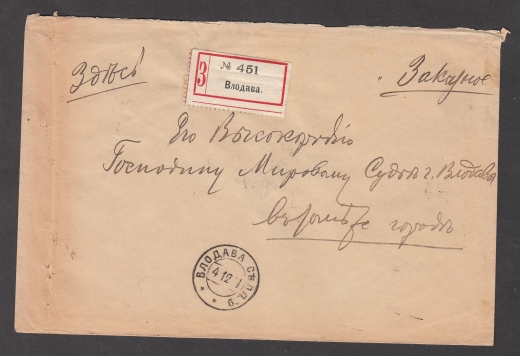 Здѣсь
З № 451
Влодава.
Заказное
Его Высокородію
Господину Мировому Судьѣ г. Влодава
городѣ
ВЛОДАВА СѢДЛ. Г.
4 12